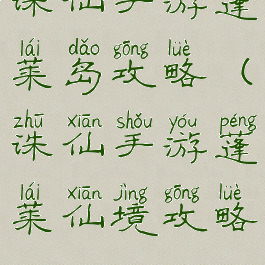 诛仙手游蓬
lái dǎo gōng lüè
莱岛攻略（
zhū xiān shǒu yóu péng
诛仙手游蓬
lái xiān jìng gōng lüè
莱仙境攻略